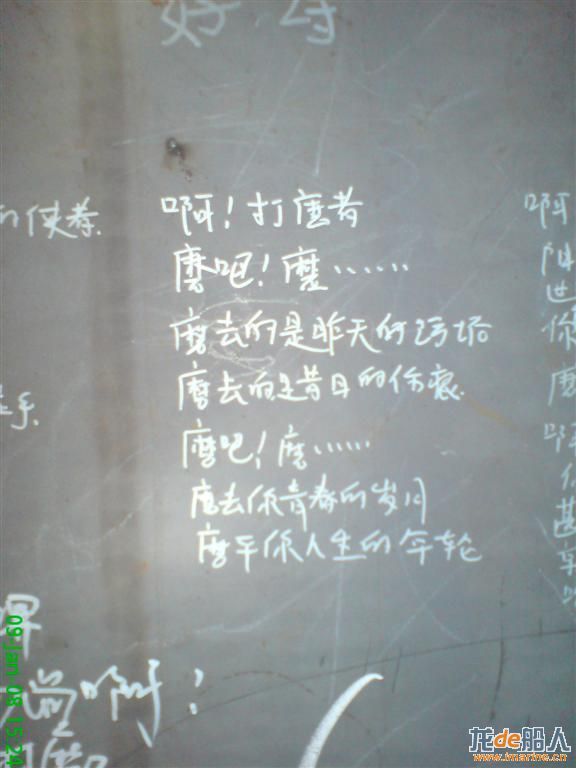 好诗
的使者
啊！打磨者
磨吧！磨……
磨去的是昨天的污垢
磨去的是昔日的伤痕
磨吧！磨……
磨去你青春的岁月
磨平你人生的年轮
手
啊
你
磨
啊！
09-Jan-08 15:24
龙de船人
www.imarine.cn